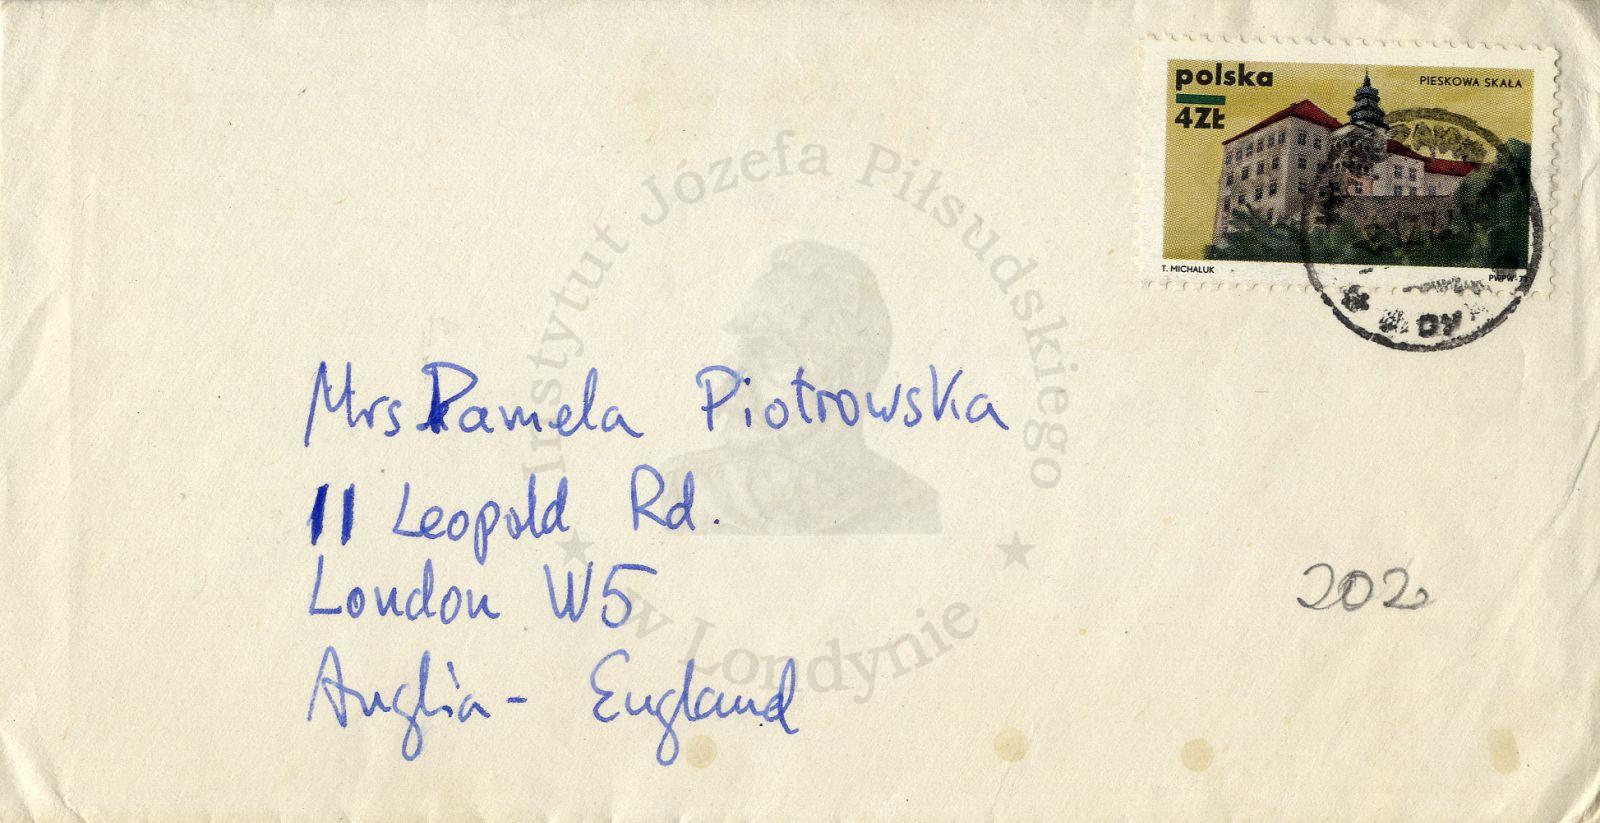 polska
PIESKOWA SKAŁA
4ZŁ
T. MICHALUK
Instytut Józefa Piłsudskiego
w Londynie
Mrs Pamela Piotrowska
11 Leopold Rd.
London W5
Anglia - England
202